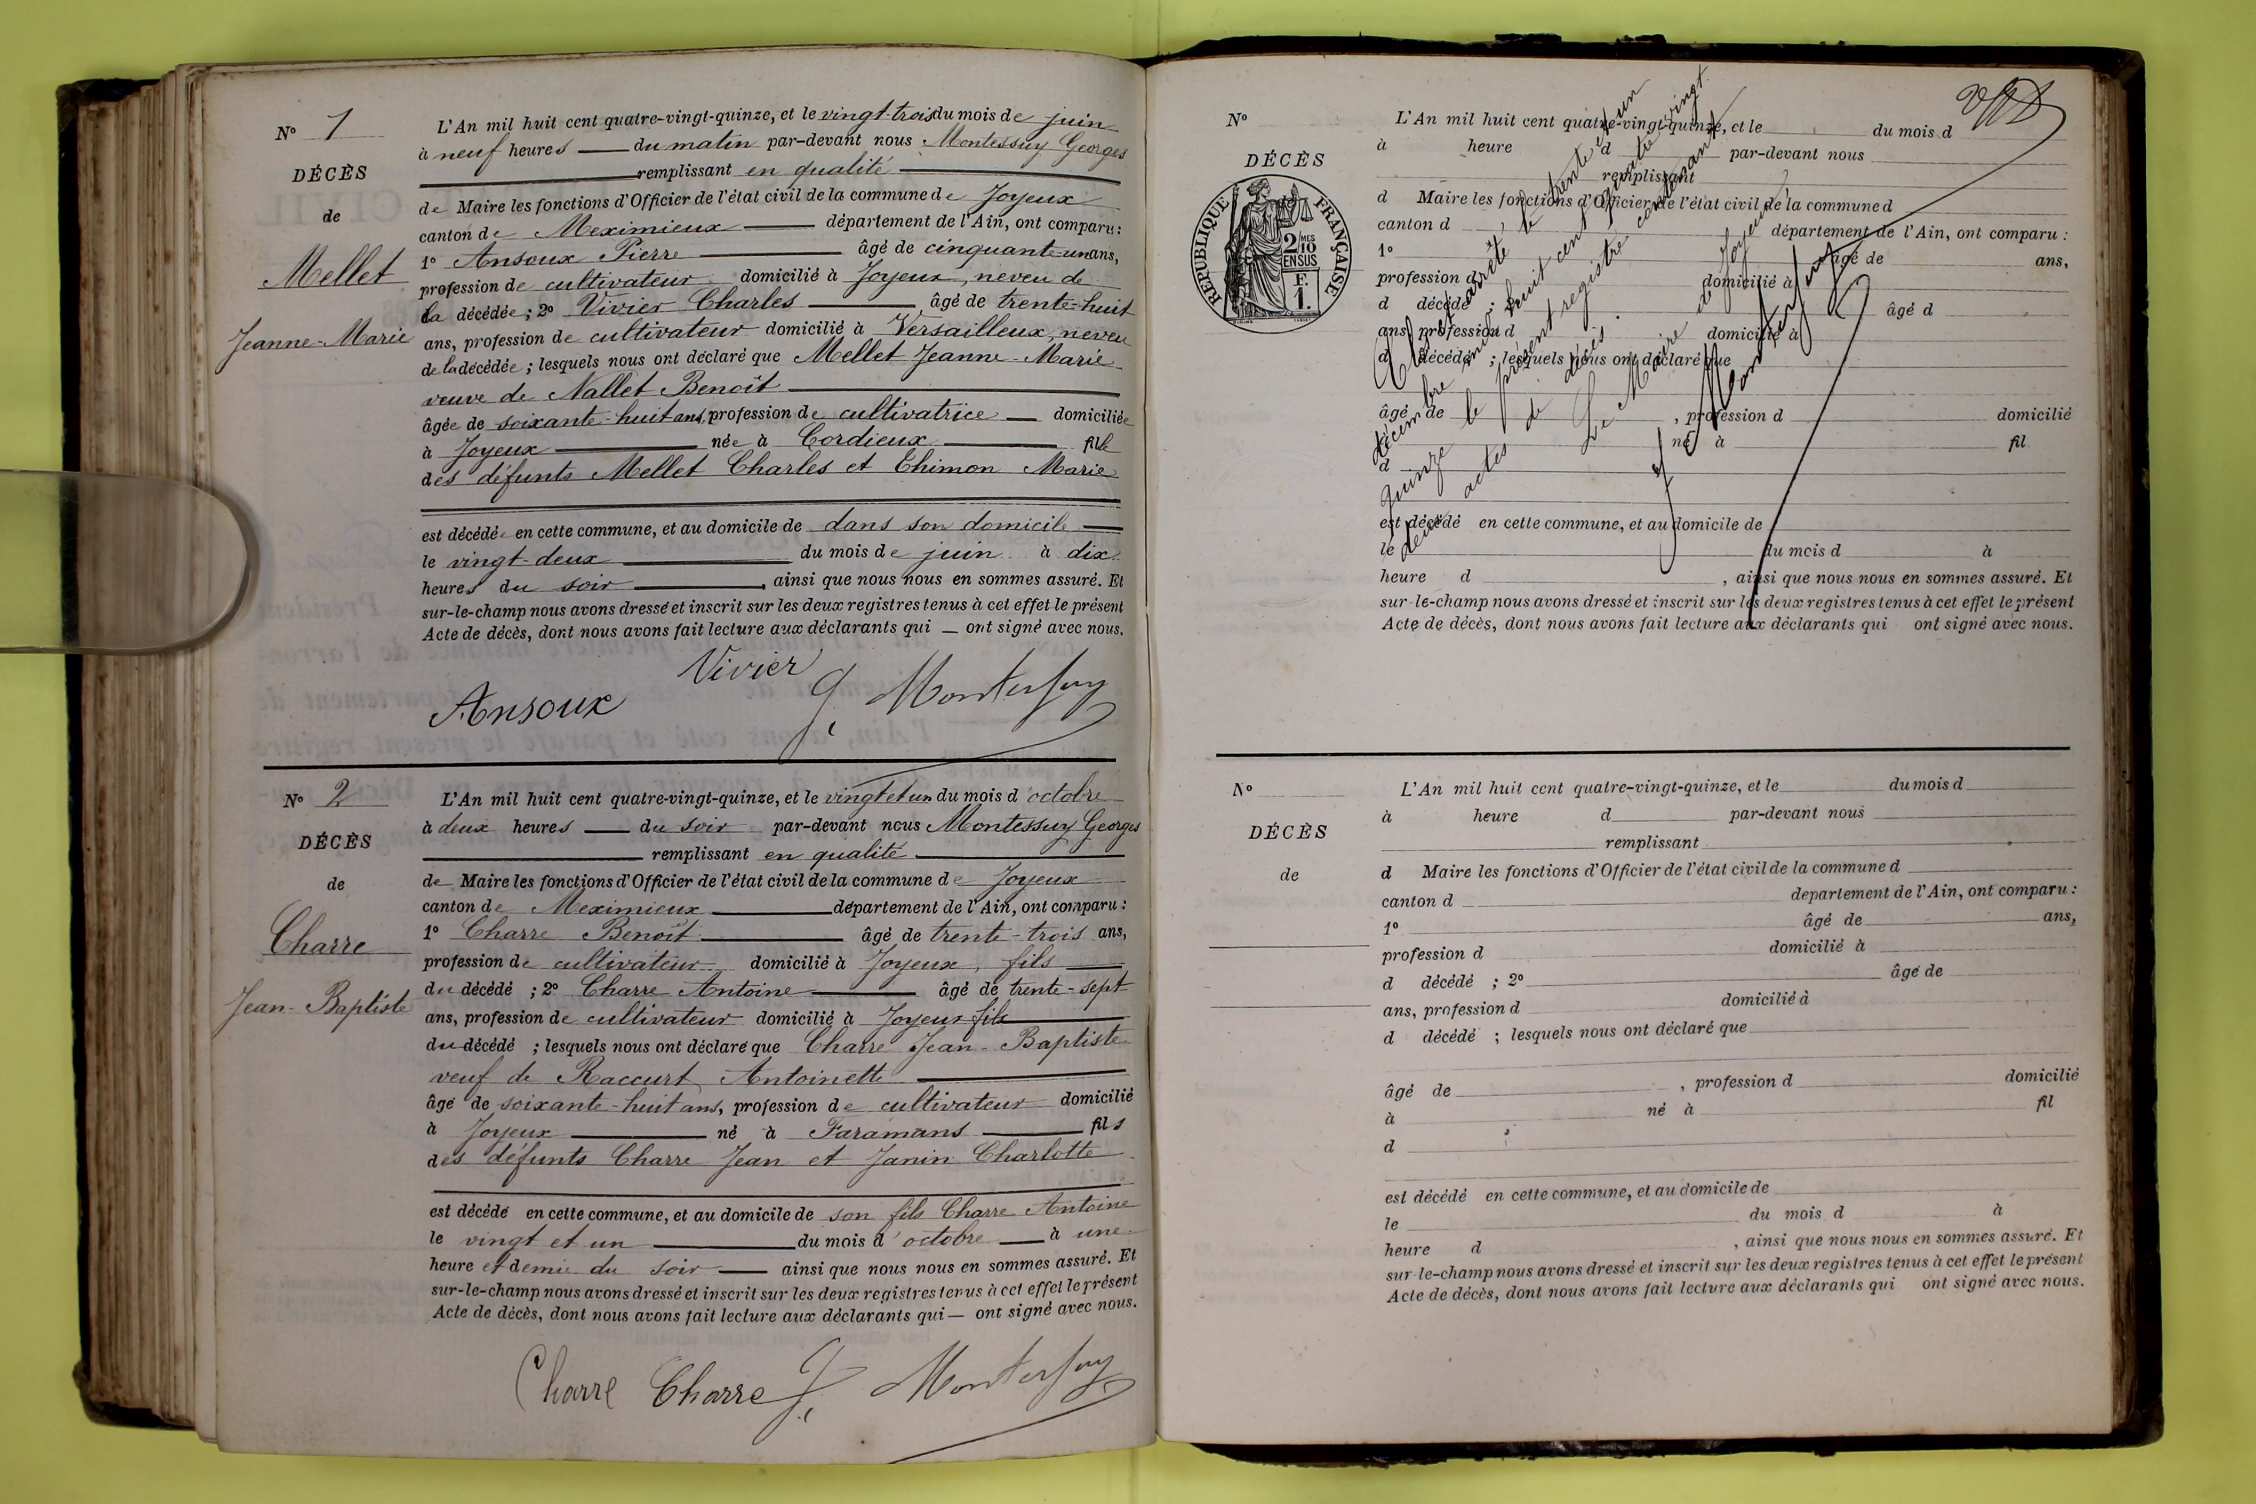 N° 1
DÉCÈS
de
Mellet
Jeanne-Marie
L'An mil huit cent quatre-vingt-quinze, et le vingt-trois du mois de juin
à neuf heures du matin par-devant nous Montessuy Georges
remplissant en qualité
de Maire les fonctions d'Officier de l'état civil de la commune de Joyeux
canton de Meximieux département de l'Ain, ont comparu :
1° Ansoux Pierre âgé de cinquante-un ans,
profession de cultivateur domicilié à Joyeux, neveu de
la décédée ; 2° Vivier Charles âgé de trente-huit
ans, profession de cultivateur domicilié à Versailleux, neveu
de la décédée ; lesquels nous ont déclaré que Mellet Jeanne-Marie
veuve de Nallet Benoît
âgée de soixante-huit ans, profession de cultivatrice domiciliée
à Joyeux née à Cordieux fille
des défunts Mellet Charles et Thimon Marie
est décédée en cette commune, et au domicile de dans son domicile
le vingt-deux du mois de juin à dix
heures du soir, ainsi que nous nous en sommes assuré. Et
sur-le-champ nous avons dressé et inscrit sur les deux registres tenus à cet effet le présent
Acte de décès, dont nous avons fait lecture aux déclarants qui — ont signé avec nous.
Vivier
Ansoux G. Montessuy
N° 2
DÉCÈS
de
Charre
Jean-Baptiste
L'An mil huit cent quatre-vingt-quinze, et le vingt et un du mois d'octobre
à deux heures du soir par-devant nous Montessuy Georges
remplissant en qualité
de Maire les fonctions d'Officier de l'état civil de la commune de Joyeux
canton de Meximieux département de l'Ain, ont comparu :
1° Charre Benoît âgé de trente-trois ans,
profession de cultivateur domicilié à Joyeux, fils
du décédé ; 2° Charre Antoine âgé de trente-sept
ans, profession de cultivateur domicilié à Joyeux fils
du décédé ; lesquels nous ont déclaré que Charre Jean-Baptiste
veuf de Raccurt Antoinette
âgé de soixante-huit ans, profession de cultivateur domicilié
à Joyeux né à Faramans fils
des défunts Charre Jean et Janin Charlotte
est décédé en cette commune, et au domicile de son fils Charre Antoine
le vingt et un du mois d'octobre à une
heure et demie du soir ainsi que nous nous en sommes assuré. Et
sur-le-champ nous avons dressé et inscrit sur les deux registres tenus à cet effet le présent
Acte de décès, dont nous avons fait lecture aux déclarants qui — ont signé avec nous.
Charre Charre G. Montessuy
N°
DÉCÈS
RÉPUBLIQUE FRANÇAISE
2 MES
10
EN SUS
F.
1.
L'An mil huit cent quatre-vingt-quinze, et le du mois d
à heure d par-devant nous
remplissant
d Maire les fonctions d'Officier de l'état civil de la commune d
canton d département de l'Ain, ont comparu :
1° âgé de ans,
profession d domicilié à
d décédé ; âgé d
ans, profession d domicilié à
d décédé ; lesquels nous ont déclaré que
âgé de , profession d domicilié
né à fil
d
est décédé en cette commune, et au domicile de
le du mois d à
heure d , ainsi que nous nous en sommes assuré. Et
sur-le-champ nous avons dressé et inscrit sur les deux registres tenus à cet effet le présent
Acte de décès, dont nous avons fait lecture aux déclarants qui ont signé avec nous.
Clos et arrêté le trente et un
décembre mil huit cent quatre vingt
quinze le présent registre contenant
deux actes de décès.
Le Maire de Joyeux
G. Montessuy
N°
DÉCÈS
de
L'An mil huit cent quatre-vingt-quinze, et le du mois d
à heure d par-devant nous
remplissant
d Maire les fonctions d'Officier de l'état civil de la commune d
canton d département de l'Ain, ont comparu :
1° âgé de ans,
profession d domicilié à
d décédé ; 2° âgé de
ans, profession d domicilié à
d décédé ; lesquels nous ont déclaré que
âgé de , profession d domicilié
à né à fil
d
est décédé en cette commune, et au domicile de
le du mois d à
heure d , ainsi que nous nous en sommes assuré. Et
sur-le-champ nous avons dressé et inscrit sur les deux registres tenus à cet effet le présent
Acte de décès, dont nous avons fait lecture aux déclarants qui ont signé avec nous.